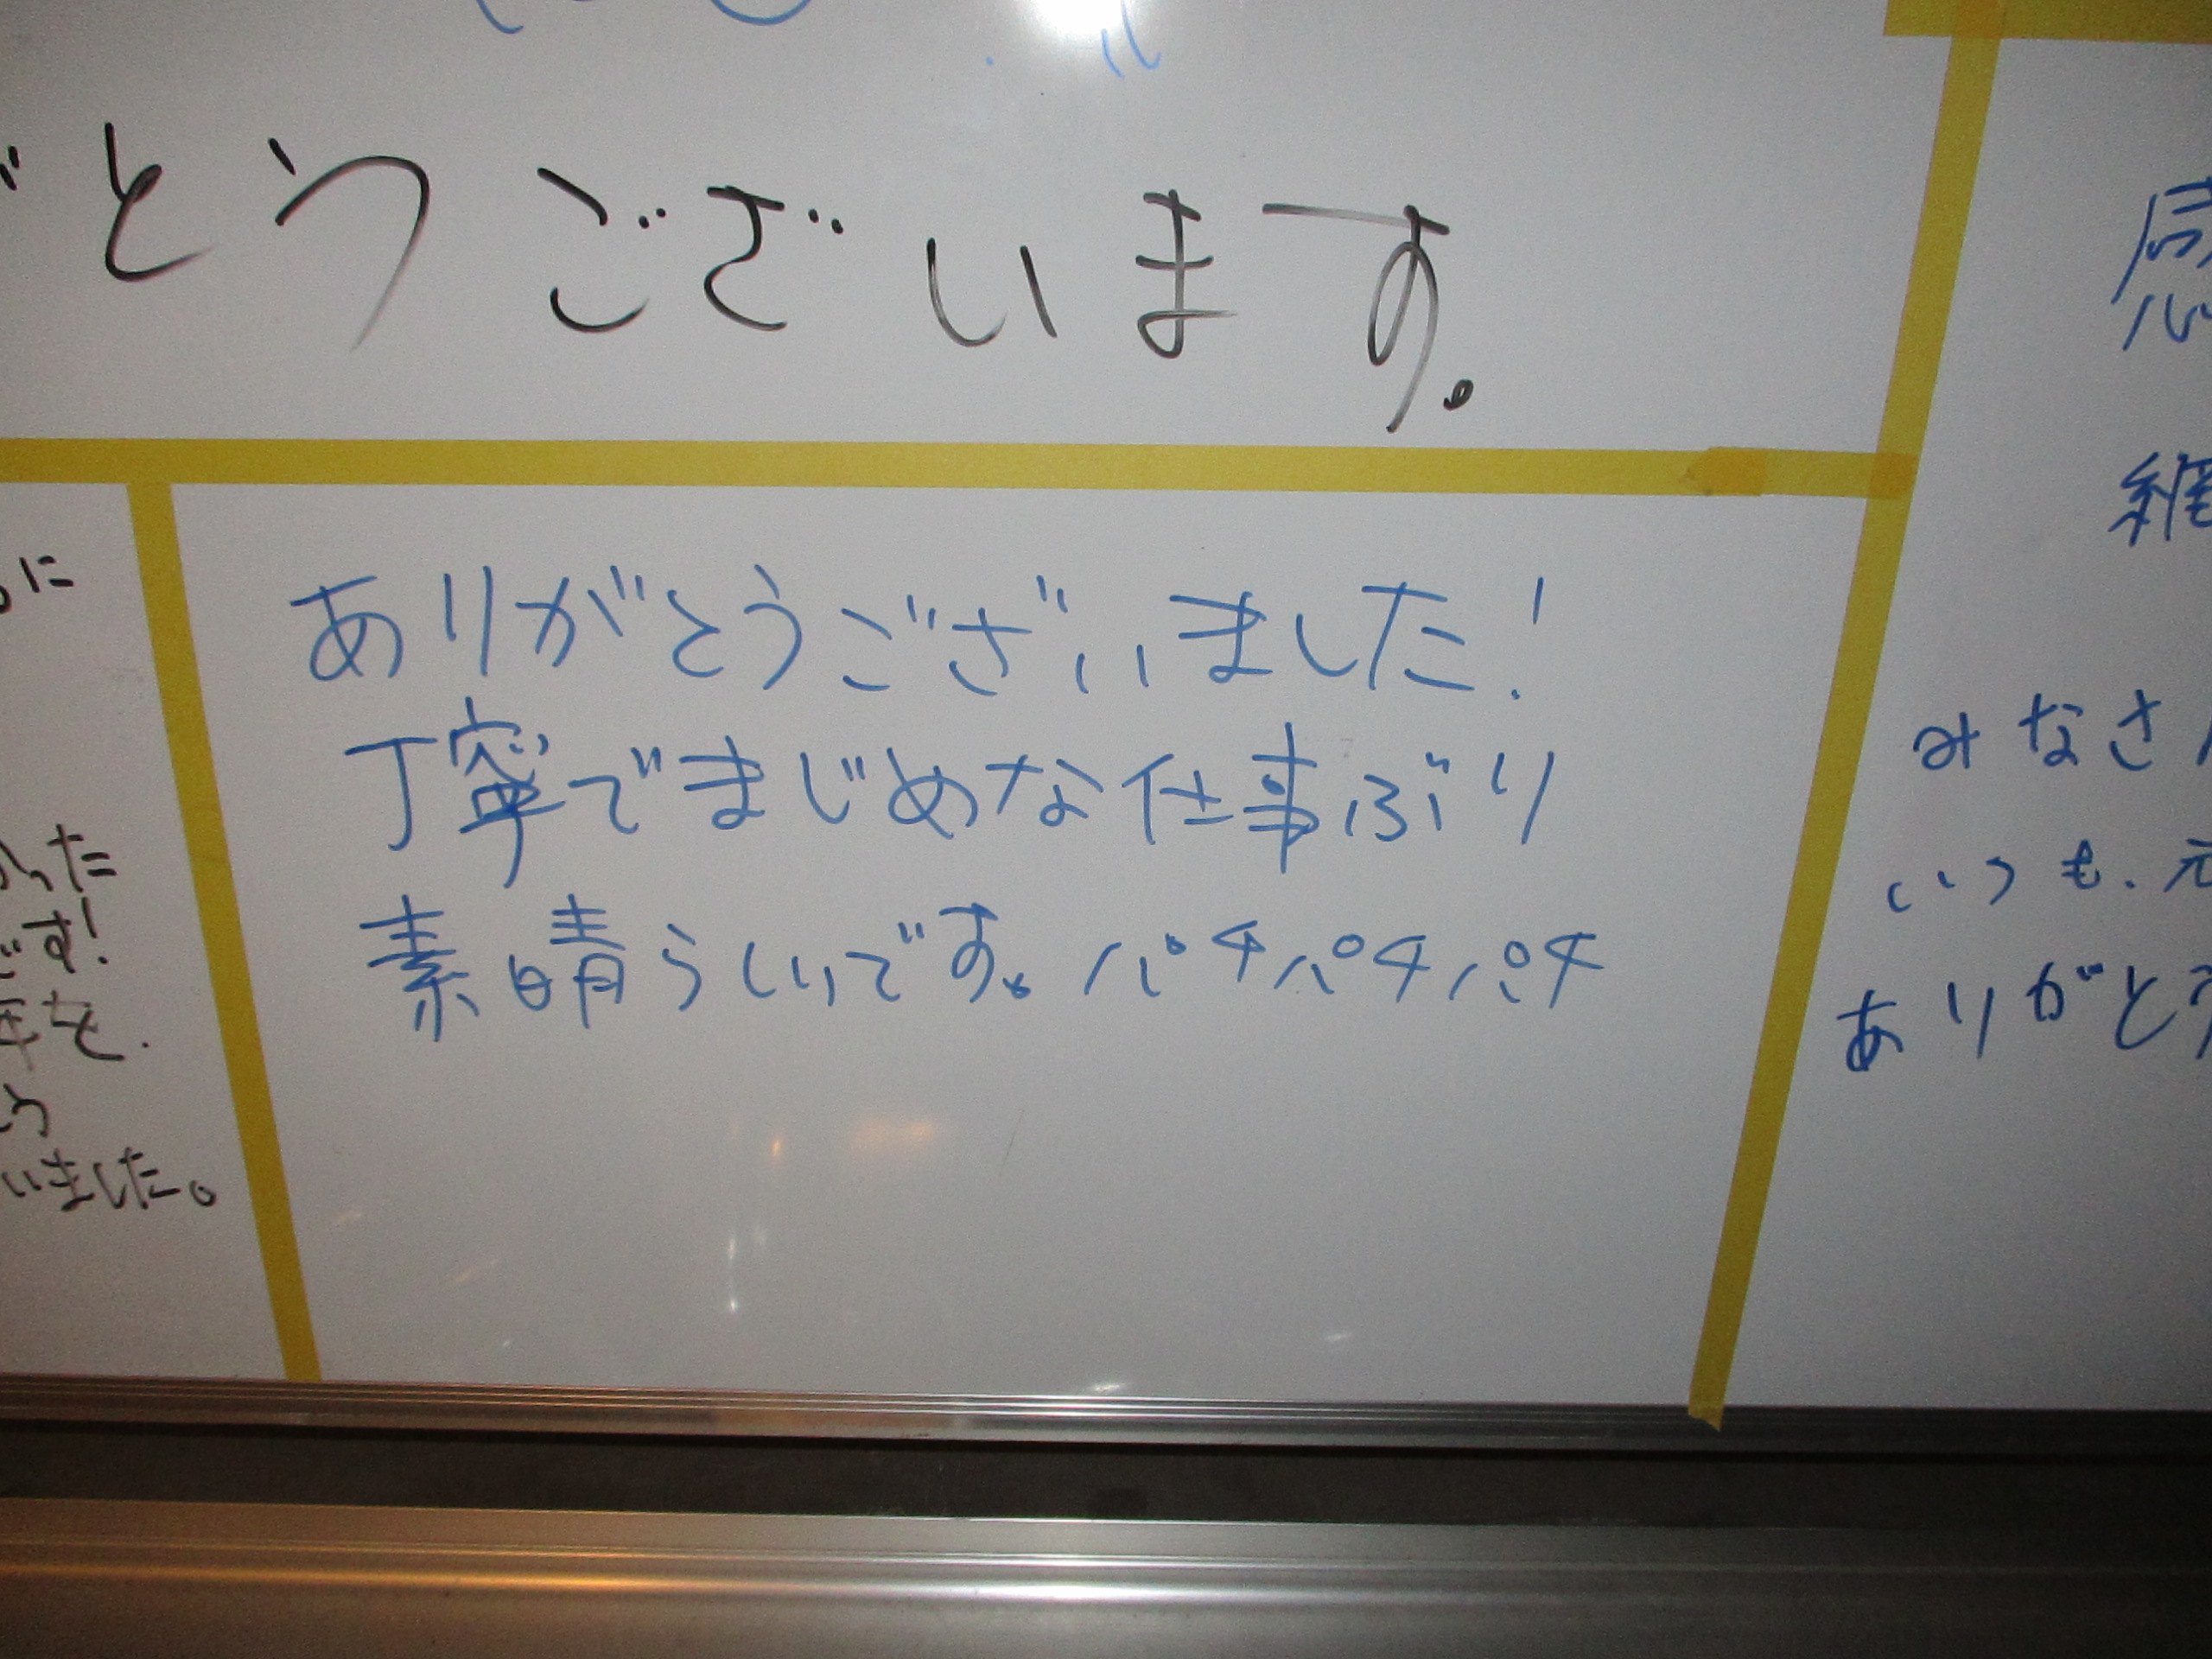 とうございます。
ありがとうございました!
丁寧でまじめな仕事ぶり
素晴らしいです。パチパチパチ
に
った
です!
を.
いました。
みなさ
いつも.元
ありがとう